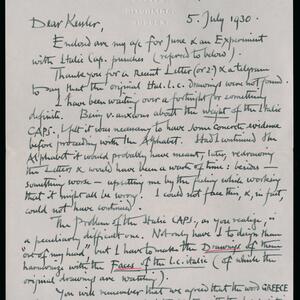 5. July 1930.
Dear Kessler,
Enclosed are my age for June & an Experiment
with Italic Cap. punches (referred to below).
Thank you for a Recent Letter (or 2) & a telegram
to say that the original Ital. l.c. Drawings were not found.
I have been waiting over a fortnight for something
definite. Being v. anxious about the weight of the Italic
CAPS. I felt it was necessary to have some concrete evidence
before proceeding with the Alphabet. Had I continued the
Alphabet it would probably have meant, later, redrawing
the Letters & would have been a waste of time: besides
something worse — upsetting me by the feeling while working
that it might all be wrong. I could not face this, &, in fact,
could not have continued.
The Problem of the Italic CAPS, as you realize, is "a
peculiarly difficult" one. Not only have I to design them
out of my head but I have to make the Drawings of them
harmonize with the Faces of the l.c. italic (of which the
original drawings are wanting).
You will remember that we agreed that the word GREECE